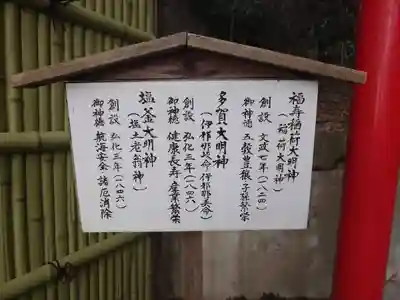 福寿稲荷大明神
(稲荷大明神)
創設 文政七年(一八二四)
御神徳 五穀豊穣 子孫繁栄
多賀大明神
(伊邪那岐命伊邪那美命)
創設 弘化三年(一八四六)
御神徳 健康長寿 産業繁栄
塩釜大明神
(塩土老翁神)
創設 弘化三年(一八四六)
御神徳 航海安全 諸厄消除